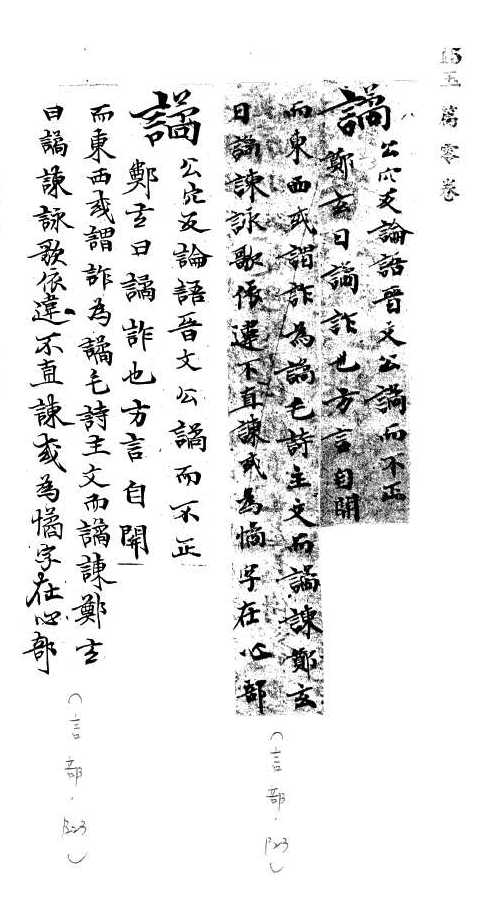 15
玉篇零卷
譎 公穴反論語晉文公譎而不正
鄭玄曰譎詐也方言自關
而東西或謂詐為譎毛詩主文而譎諫鄭玄
曰譎諫詠歌依違不直諫或為憰字在心部
（言部．P.23）
譎 公穴反論語晉文公譎而不正
鄭玄曰譎詐也方言自開
而東西或謂詐為譎毛詩主文而譎諫鄭玄
曰譎諫詠歌依違不直諫或為憰字在心部
（言部．P.23）